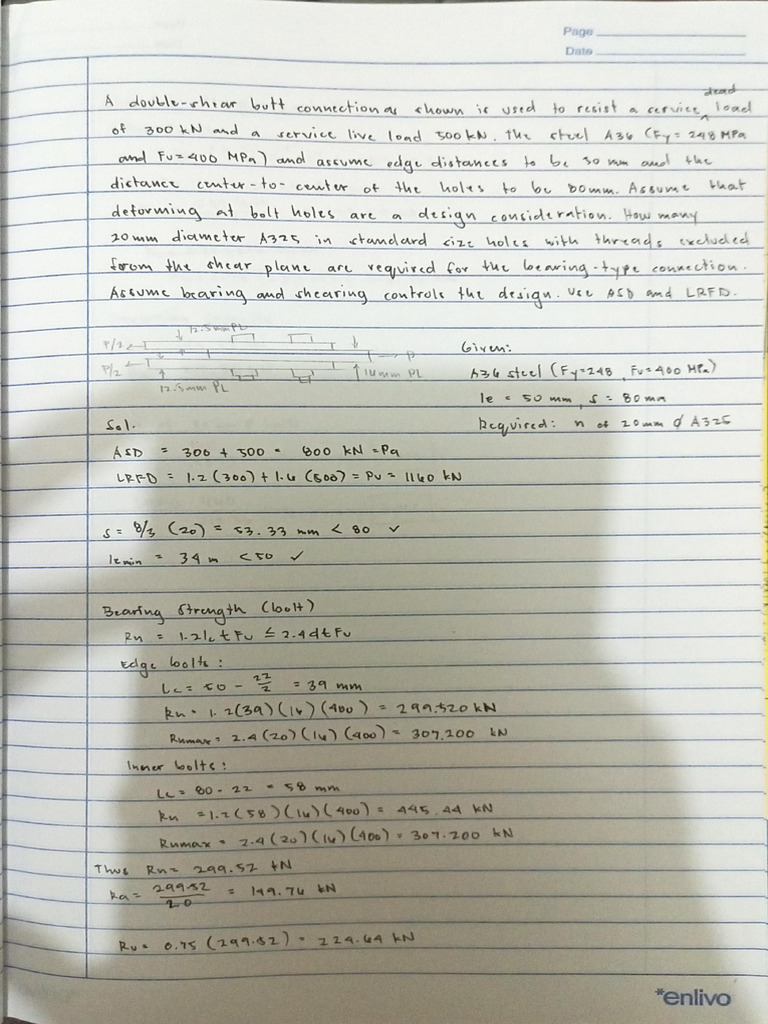 Page
Date
dead
A double-shear butt connection as shown is used to resist a service load
of 300 kN and a service live load 500 kN. The steel A36 (Fy = 248 MPa
and Fu = 400 MPa) and assume edge distances to be 50 mm and the
distance center-to-center of the holes to be 80mm. Assume that
deforming at bolt holes are a design consideration. How many
20mm diameter A325 in standard size holes with threads excluded
from the shear plane are required for the bearing-type connection.
Assume bearing and shearing controls the design. Use ASD and LRFD.
12.5 mm PL
P/2
P
P/2
16 mm PL
12.5 mm PL
Given:
A36 steel (Fy = 248, Fu = 400 MPa)
le = 50 mm, s = 80 mm
Required: n of 20 mm ∅ A325
Sol.
ASD = 300 + 500 = 800 kN = Pa
LRFD = 1.2 (300) + 1.6 (500) = Pu = 1160 kN
s = 8/3 (20) = 53.33 mm < 80 ✓
le min = 34 m < 50 ✓
Bearing Strength (bolt)
Rn = 1.2 lc t Fu ≤ 2.4 d t Fu
Edge bolts:
Lc = 50 - 22/2 = 39 mm
Rn = 1.2 (39) (16) (400) = 299.520 kN
Rumax = 2.4 (20) (16) (400) = 307.200 kN
Inner bolts:
Lc = 80 - 22 = 58 mm
Rn = 1.2 (58) (16) (400) = 445.44 kN
Rumax = 2.4 (20) (16) (400) = 307.200 kN
Thus Rn = 299.52 kN
Ra = 299.52 / 2.0 = 149.76 kN
Ru = 0.75 (299.52) = 224.64 kN
*enlivo